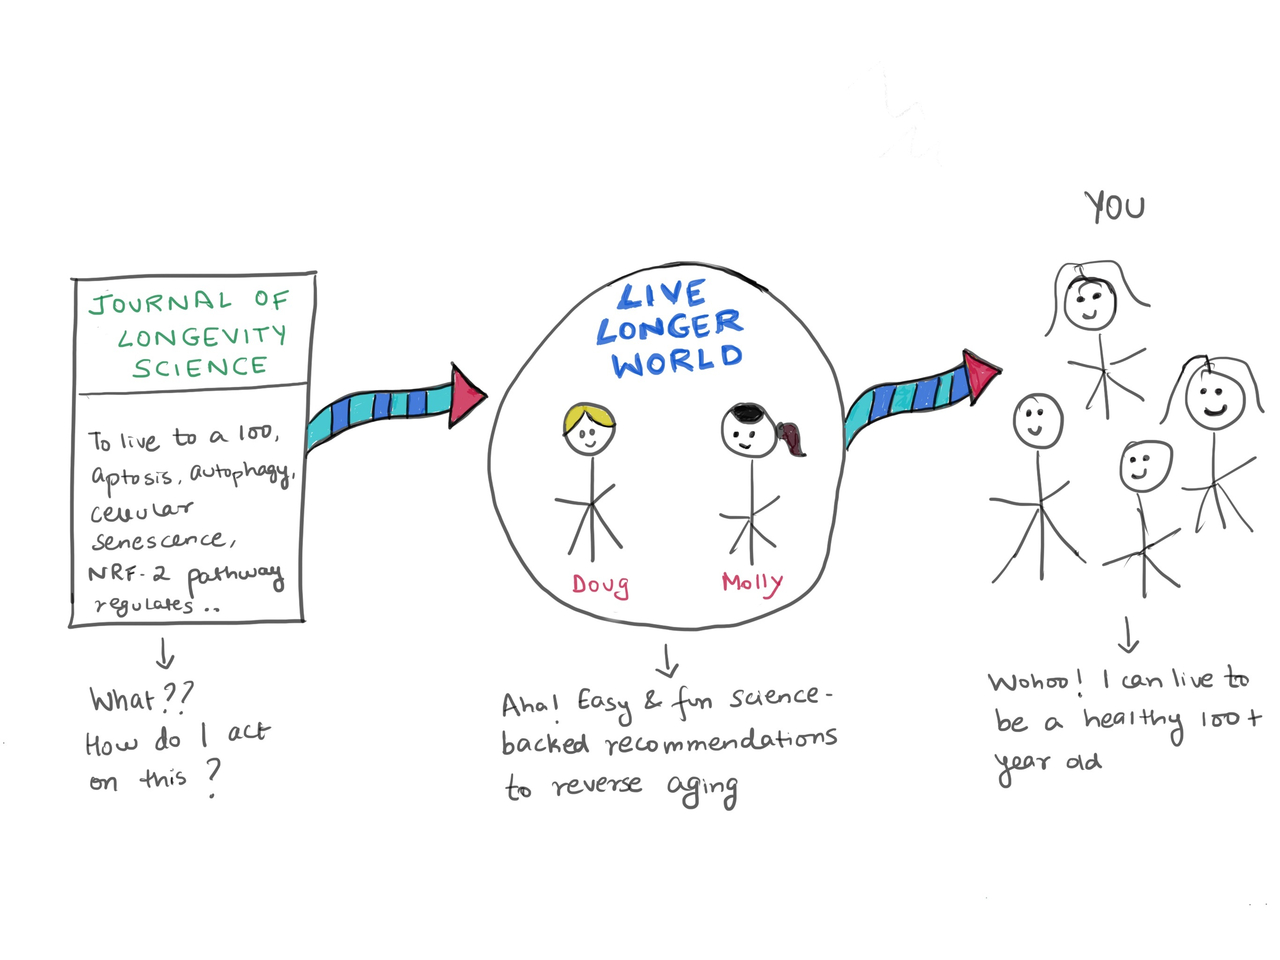 JOURNAL OF
LONGEVITY
SCIENCE
To live to a 100,
aptosis, autophagy,
cellular
senescence,
NRF-2 pathway
regulates..
What??
How do I act
on this?
LIVE
LONGER
WORLD
Doug
Molly
Aha! Easy & fun science-
backed recommendations
to reverse aging
YOU
Wohoo! I can live to
be a healthy 100+
year old